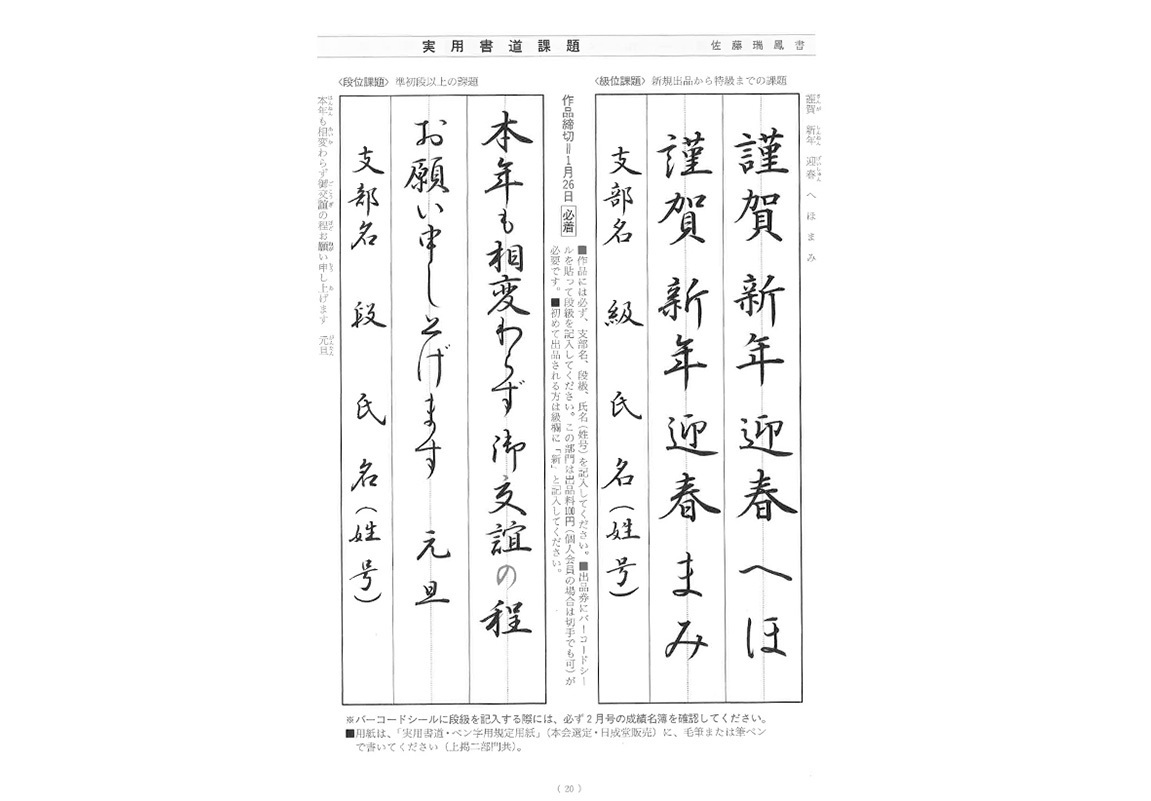 実用書道課題
佐藤瑞鳳書
〈級位課題〉新規出品から特級までの課題
謹賀 新年 迎春 へほまみ
謹賀 新年 迎春 へほ
謹賀 新年 迎春 まみ
支部名 級 氏名(姓号)
作品締切=1月26日 必着
■作品には必ず、支部名、段級、氏名(姓号)を記入してください。■出品券にバーコードシー
ルを貼って段級を記入してください。この部門は出品料100円(個人会員の場合は切手でも可)が
必要です。■初めて出品される方は級欄に「新」と記入してください。
〈段位課題〉準初段以上の課題
本年も相変わらず御交誼の程
お願い申し上げます 元旦
支部名 段 氏名(姓号)
本年も相変わらず御交誼の程お願い申し上げます 元旦
※バーコードシールに段級を記入する際には、必ず2月号の成績名簿を確認してください。
■用紙は、「実用書道・ペン字用規定用紙」(本会選定・日成堂販売)に、毛筆または筆ペン
で書いてください(上掲二部門共)。
(20)